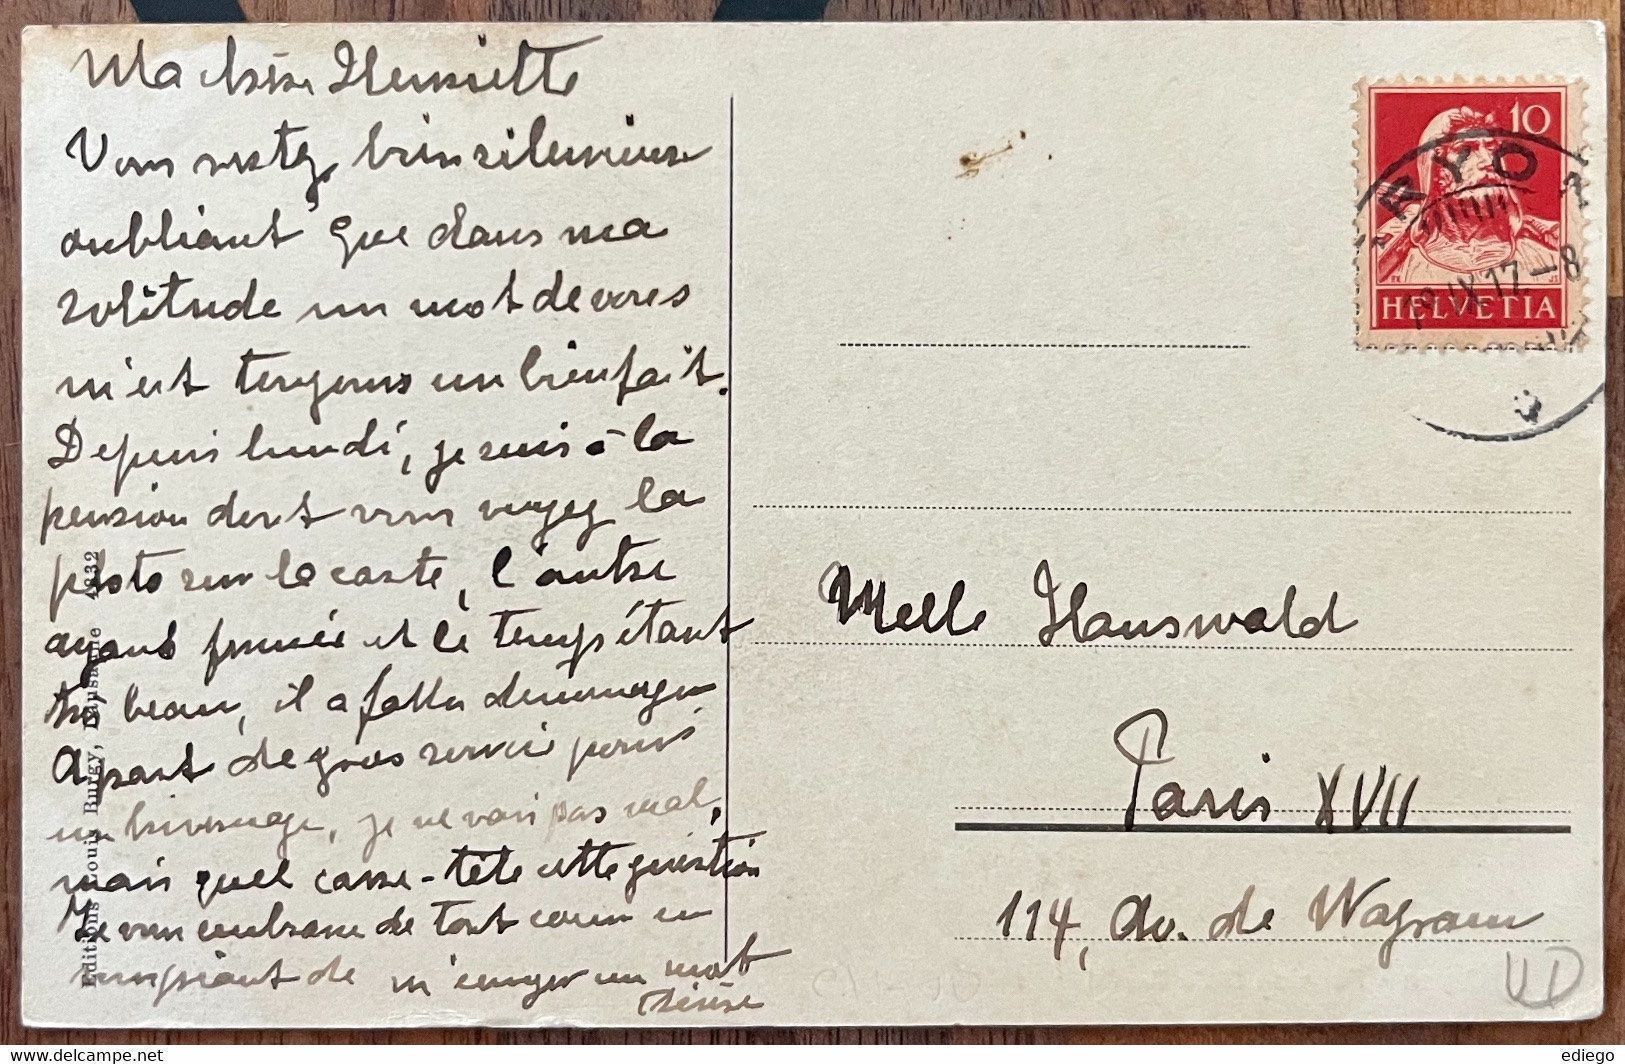 Ma chère Henriette
Vous restez bien silencieuse
oubliant que dans ma
solitude un mot de vous
m'est toujours un bienfait.
Depuis lundi, je suis à la
pension dont vous voyez la
photo sur la carte, l'autre
ayant fermée et le temps étant
très beau, il a fallu déménager
Apart de gros soucis pour
un hivernage, je ne vais pas mal,
mais quel casse-tête cette question
Je vous embrasse de tout coeur en
suppliant de m'envoyer un mot
Editions Louis Burgy, Lausanne 4332
10
HELVETIA
IX.17-8
Melle Hauswald
Paris XVII
114, Av. de Wagram
ediego